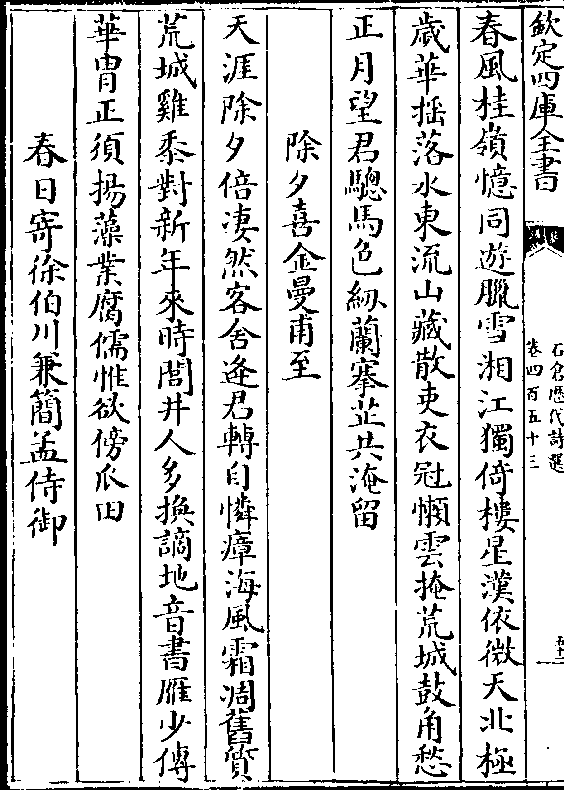 欽定四庫全書
石倉歷代詩選
卷四百五十三
春風桂嶺憶同遊臘雪湘江獨倚樓星漢依微天北極
歲華揺落水東流山藏散吏衣冠懶雲掩荒城鼓角愁
正月望君驄馬色紉蘭搴芷共淹留
除夕喜金曼甫至
天涯除夕倍凄然客舍逢君轉自憐瘴海風霜凋舊質
荒城雞黍對新年來時閭井人多換謫地音書雁少傳
華胄正須揚藻業腐儒惟欲傍瓜田
春日寄徐伯川兼簡孟侍御